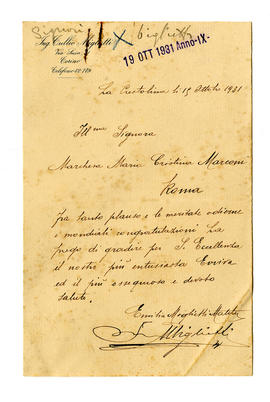 Signori biglietto
Ing. Tullio Miglietti
Via
Torino
Telefono 80-179
X
19 OTT 1931 Anno-IX-
La Crestolina li 15 Ottobre 1931
Ill.ma Signora
Marchesa Maria Cristina Marconi
Roma
fra tanto plauso e le meritate odierne
e mondiali congratulazioni La
prego di gradire per S. Eccellenza
il nostro più entusiasta Evviva
ed il più ossequioso e devoto
saluto.
Emilia Miglietti
Miglietti